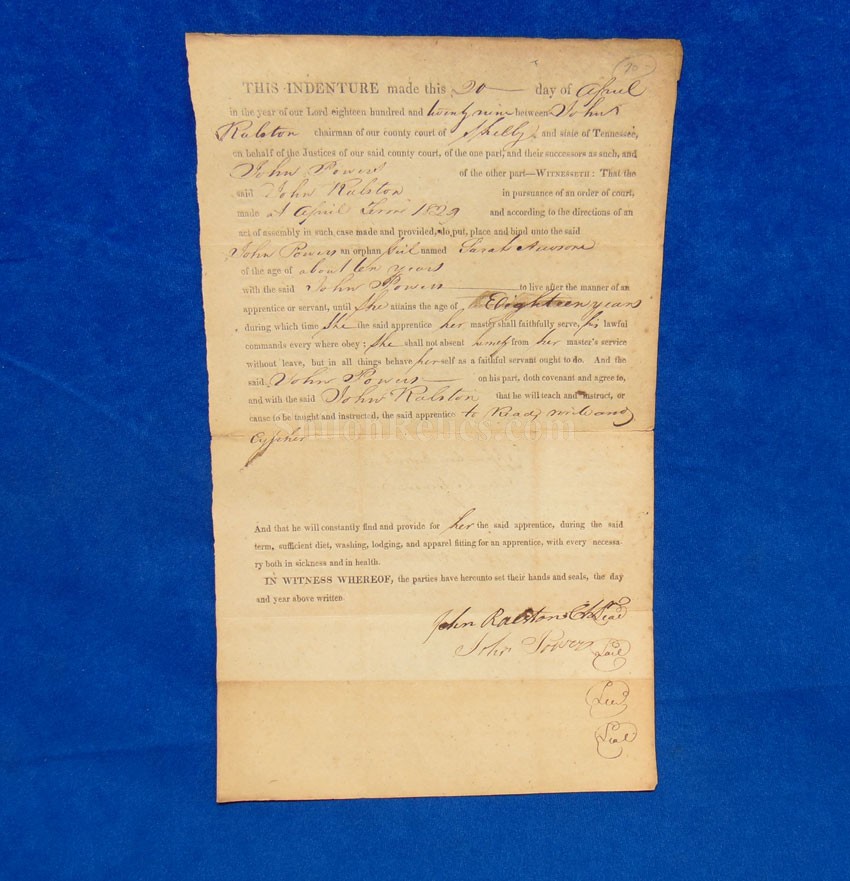 THIS INDENTURE made this 20 day of April
in the year of our Lord eighteen hundred and twenty nine between John
Ralston chairman of our county court of Shelby and state of Tennessee,
on behalf of the Justices of our said county court, of the one part, and their successors as such, and
John Powers of the other part—WITNESSETH: That the
said John Ralston in pursuance of an order of court,
made at April Term 1829 and according to the directions of an
act of assembly in such case made and provided, do, put, place and bind unto the said
John Powers an orphan Girl named Sarah
of the age of about ten years
with the said John Powers to live after the manner of an
apprentice or servant, until She attains the age of Eighteen years
during which time She the said apprentice her master shall faithfully serve, his lawful
commands every where obey; She shall not absent herself from her master's service
without leave, but in all things behave her self as a faithful servant ought to do. And the
said John Powers on his part, doth covenant and agree to,
and with the said John Ralston that he will teach and instruct, or
cause to be taught and instructed, the said apprentice to Read write and
Cypher
UnionRelics.com
And that he will constantly find and provide for her the said apprentice, during the said
term, sufficient diet, washing, lodging, and apparel fitting for an apprentice, with every necessa-
ry both in sickness and in health.
IN WITNESS WHEREOF, the parties have hereunto set their hands and seals, the day
and year above written.
John Ralston Ch Seal
John Powers Seal
Seal
Seal